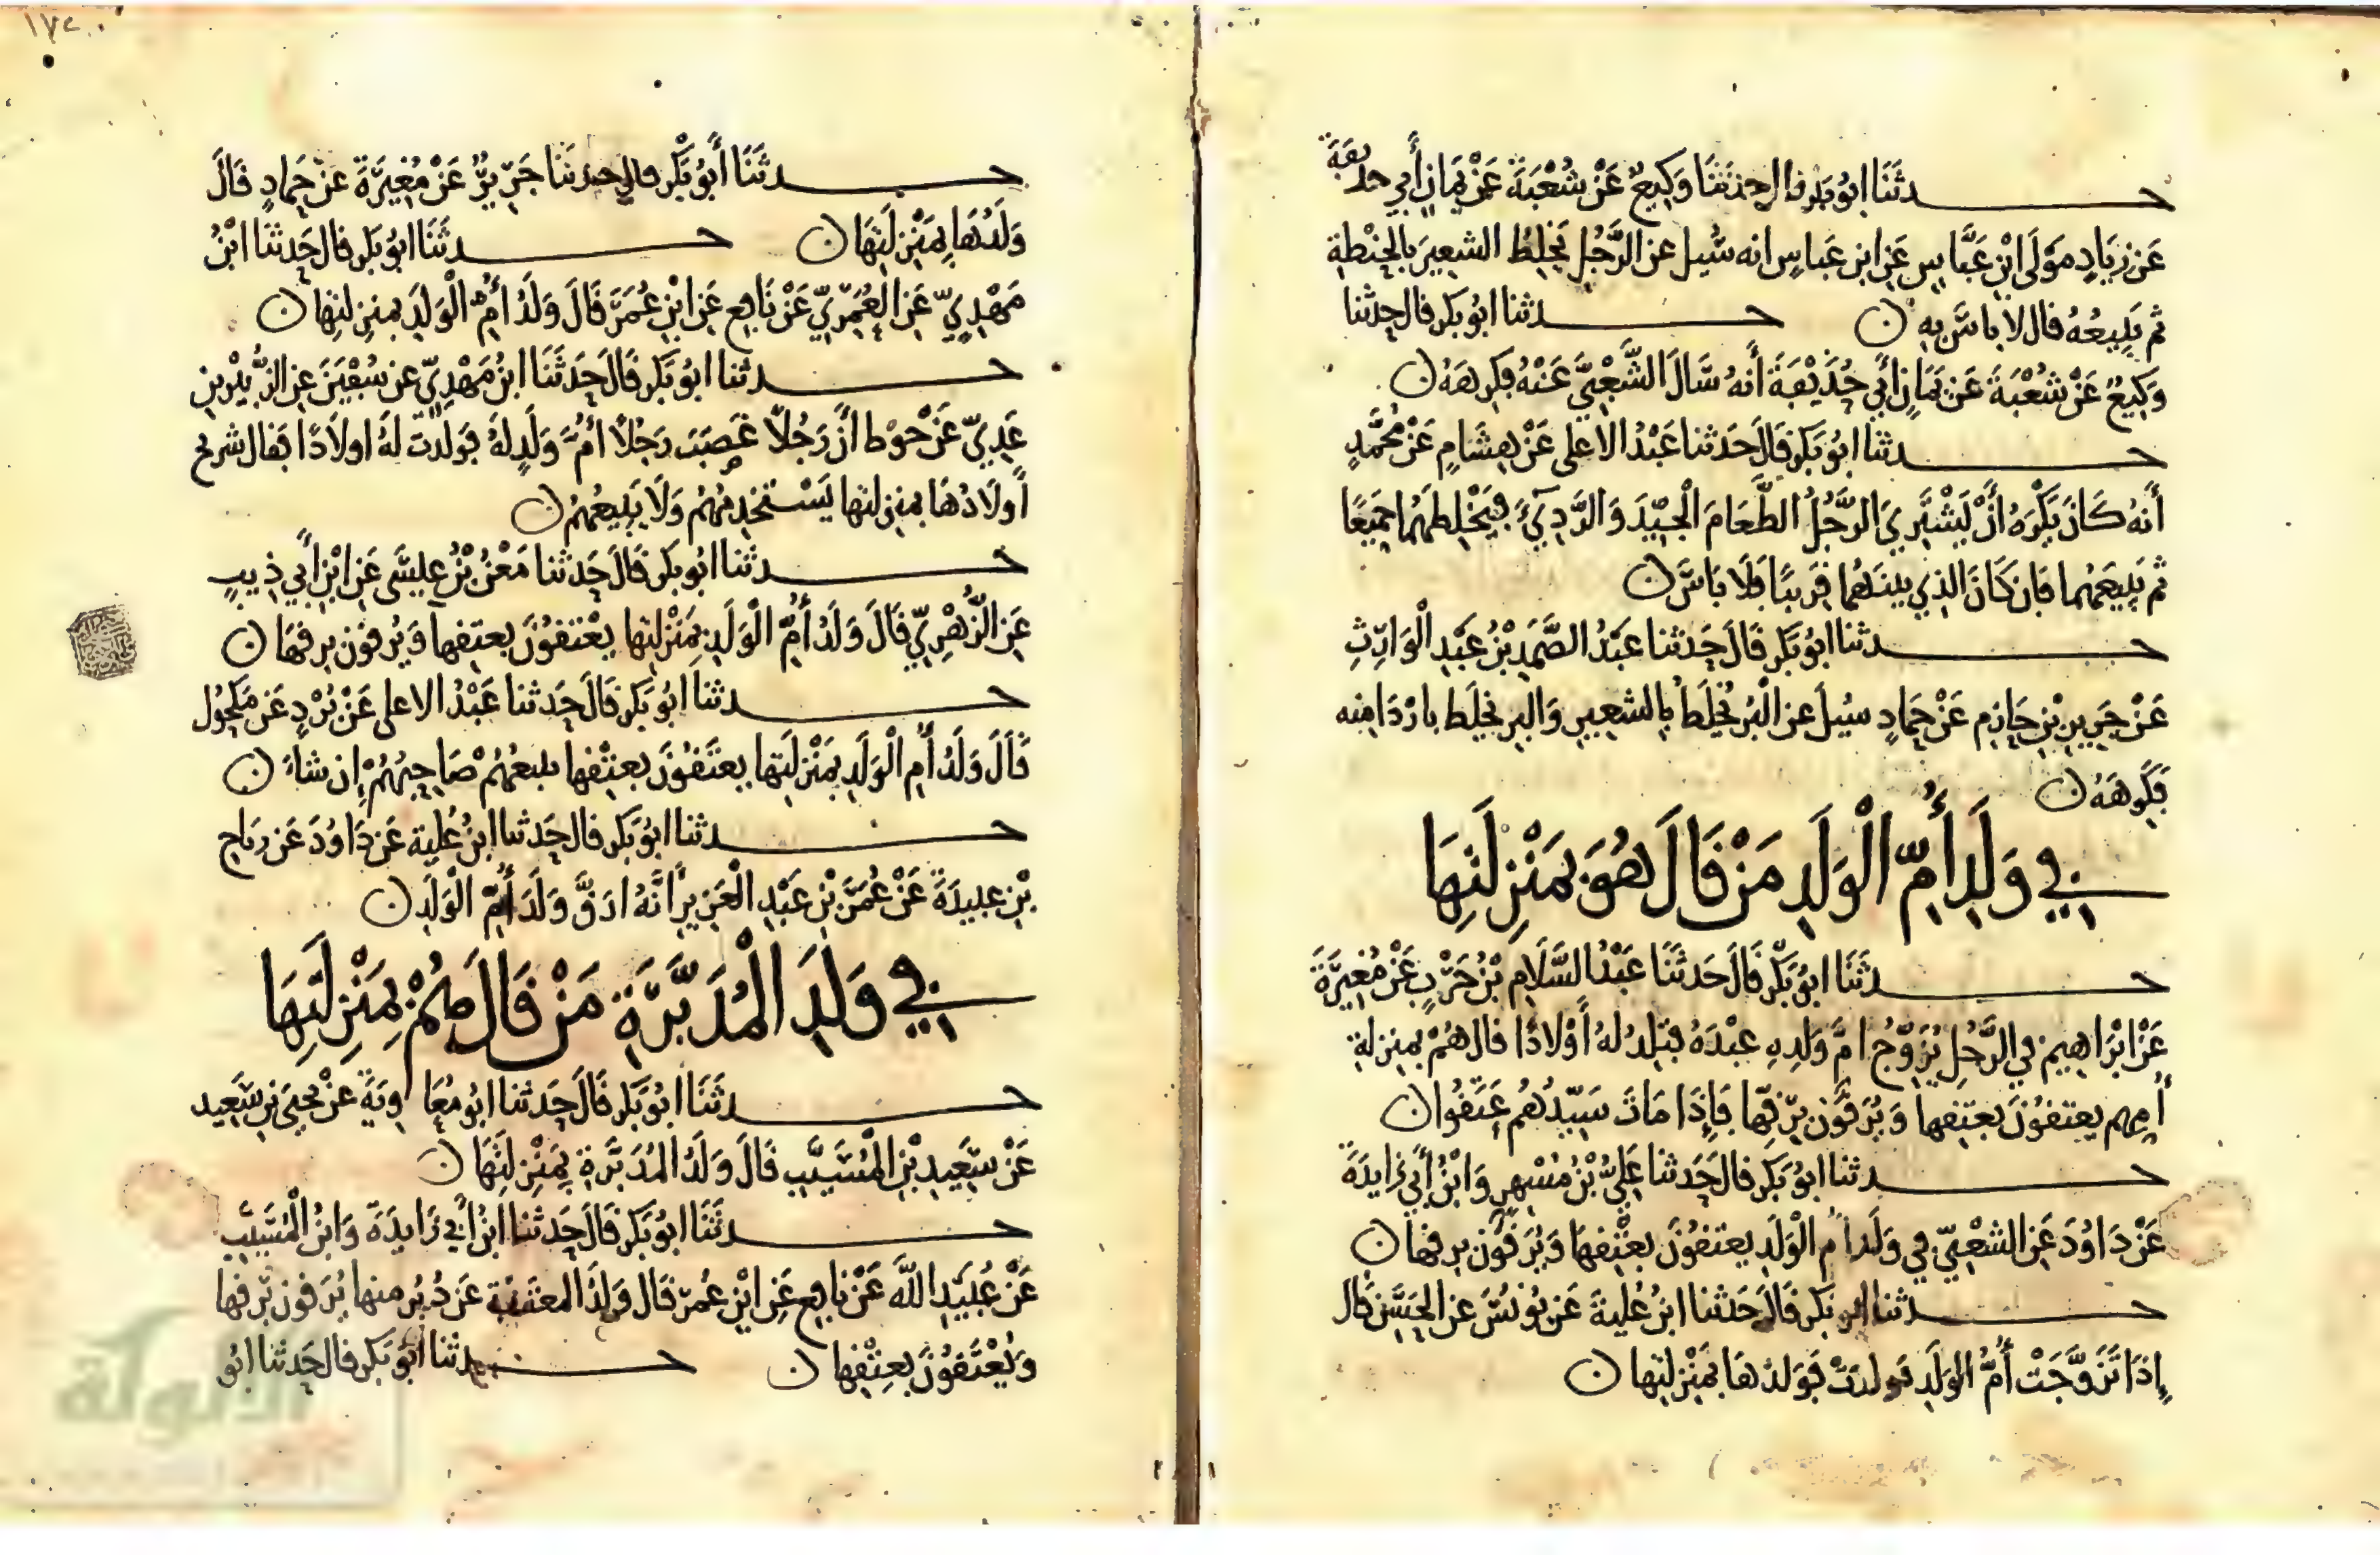 حدثنا ابو بكر قال حدثنا وكيع عن شعبة عن يمان أبي حذيفة
عن زياد مولى ابن عباس عن ابن عباس انه سيل عن الرجل يخلط الشعير بالحنطة
ثم يبيعه قال لا باس به ن حدثنا ابو بكر قال حدثنا
وكيع عن شعبة عن يمان أبي حذيفة أنه سال الشعبي عنه فكرهه ن
حدثنا ابو بكر قال حدثنا عبد الاعلى عن هشام عن محمد
أنه كان يكره أن يشتري الرجل الطعام الجيد والردي فيخلطهما جميعا
ثم يبيعهما فان كان الذي بينهما قريبا فلا باس ن
حدثنا ابو بكر قال حدثنا عبد الصمد بن عبد الوارث
عن جرير بن حازم عن حماد سيل عن البر يخلط بالشعير والبر يخلط باردا منه
فكرهه ن
في ولد أم الولد من قال هو بمنزلتها
حدثنا ابو بكر قال حدثنا عبد السلام بن حرب عن مغيرة
عن ابراهيم في الرجل يزوج ام ولده عبده فتلد له أولادا قال هم بمنزلة
أمهم يعتقون بعتقها ويرقون برقها فإذا مات سيدهم عتقوا ن
حدثنا ابو بكر قال حدثنا علي بن مسهر وابن أبي زايدة
عن داود عن الشعبي في ولد ام الولد يعتقون بعتقها ويرقون برقها ن
حدثنا ابو بكر قال حدثنا ابن علية عن يونس عن الحسن قال
إذا تزوجت أم الولد فولدت فولدها بمنزلتها ن
١٧٤
حدثنا أبو بكر قال حدثنا جرير عن مغيرة عن حماد قال
ولدها بمنزلتها ن حدثنا ابو بكر قال حدثنا ابن
مهدي عن العمري عن نافع عن ابن عمر قال ولد أم الولد بمنزلتها ن
حدثنا ابو بكر قال حدثنا ابن مهدي عن سفين عن الزبير بن
عدي عن حوط أن رجلا غصب رجلا أم ولد له فولدت له اولادا فقال شريح
أولادها بمنزلتها يستخدمهم ولا يبيعهم ن
حدثنا ابو بكر قال حدثنا معن بن عيسى عن ابن أبي ذيب
عن الزهري قال ولد أم الولد بمنزلتها يعتقون بعتقها ويرقون برقها ن
حدثنا ابو بكر قال حدثنا عبد الاعلى عن برد عن مكحول
قال ولد أم الولد بمنزلتها يعتقون بعتقها يبيعهم صاحبهم إن شاء ن
حدثنا ابو بكر قال حدثنا ابن علية عن داود عن رباح
بن عبيدة عن عمر بن عبد العزيز أنه ارق ولد أم الولد ن
في ولد المدبرة من قال هم بمنزلتها
حدثنا ابو بكر قال حدثنا ابو معاوية عن يحيى بن سعيد
عن سعيد بن المسيب قال ولد المدبرة بمنزلتها ن
حدثنا ابو بكر قال حدثنا ابن أبي زايدة وابن المسيب
عن عبيد الله عن نافع عن ابن عمر قال ولد المعتقة عن دبر منها يرقون برقها
ويعتقون بعتقها ن حدثنا ابو بكر قال حدثنا ابو
الألوكة